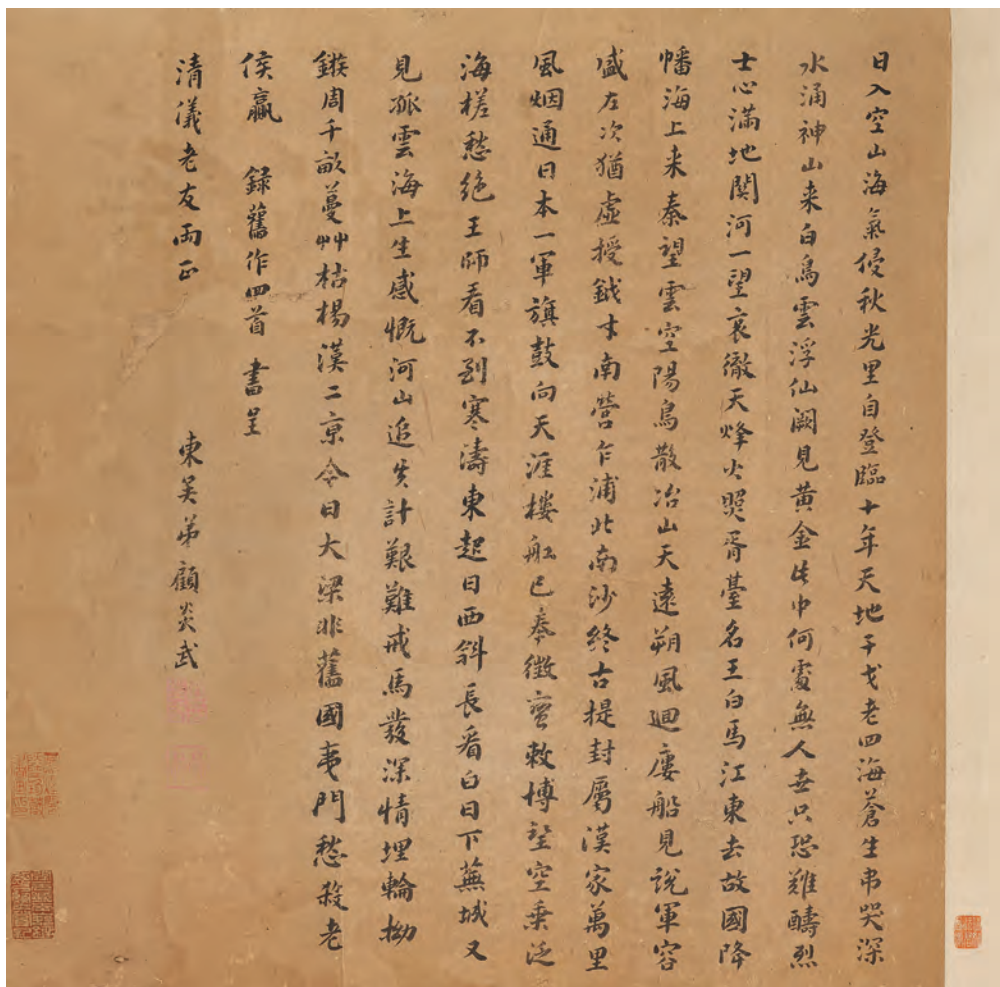 日入空山海氣侵秋光里自登臨十年天地干戈老四海蒼生弔哭深
水涌神山来白鳥雲浮仙闕見黃金此中何處無人世只恐難醻烈
士心滿地關河一望哀徹天烽火照胥臺名王白馬江東去故國降
幡海上来秦望雲空陽鳥散冶山天遠朔風迴廔船見說軍容
盛左次猶虛授鉞才南營乍浦北南沙終古提封屬漢家萬里
風烟通日本一軍旗鼓向天涯樓舡已奉徵蠻敕博望空乘泛
海槎愁絕王師看不到寒濤東起日西斜長看白日下蕪城又
見孤雲海上生感慨河山追失計艱難戎馬發深情埋輪拗
鏃周千畝蔓艸枯楊漢二京今日大梁非舊國夷門愁殺老
侯嬴 錄舊作四首 書呈
清儀老友兩正 東吴弟顧炎武